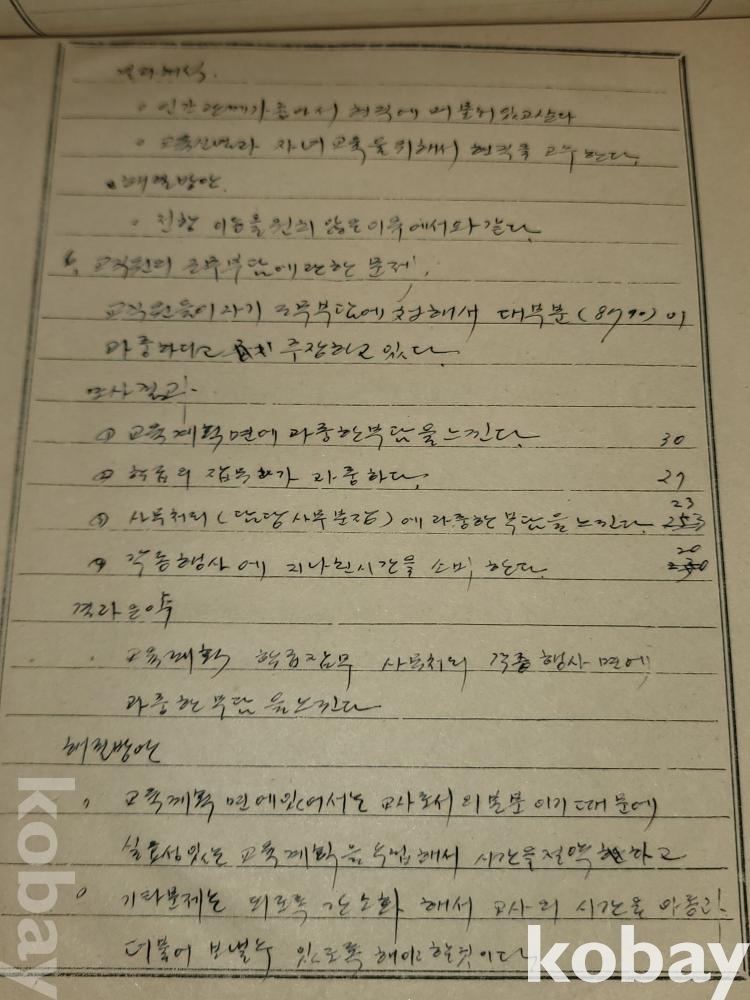 결과해석.
◦ 인간관계가 좋아서 현직에 머물러 있고싶다
◦ 교육신념과 자녀교육을 위해서 현직을 고수한다.
해결방안.
◦ 전항 이동을 원치 않는 이유에서와 같다.
6. 교직원의 근무부담에 관한 문제.
교직원들이 자기 근무부담에 대해서 대부분 (87%) 이
과중하다고 주장하고 있다.
조사결과
① 교육계획면에 과중한 부담을 느낀다. 30
② 학급의 잡무가 과중하다. 27
③ 사무처리 (담당사무분장) 에 과중한 부담을 느낀다. 23
④ 각종행사에 지나친 시간을 소비한다. 20
결과요약
교육계획 학급잡무 사무처리 각종행사면에
과중한 부담을 느낀다
해결방안
◦ 교육계획면에 있어서는 교사로서의 본분이기 때문에
실효성있는 교육계획을 수립해서 시간을 절약하고
◦ 기타문제는 되도록 간소화해서 교사의 시간을 아동과
더불어 보낼수 있도록 해야 할것이다.
kobay
kobay